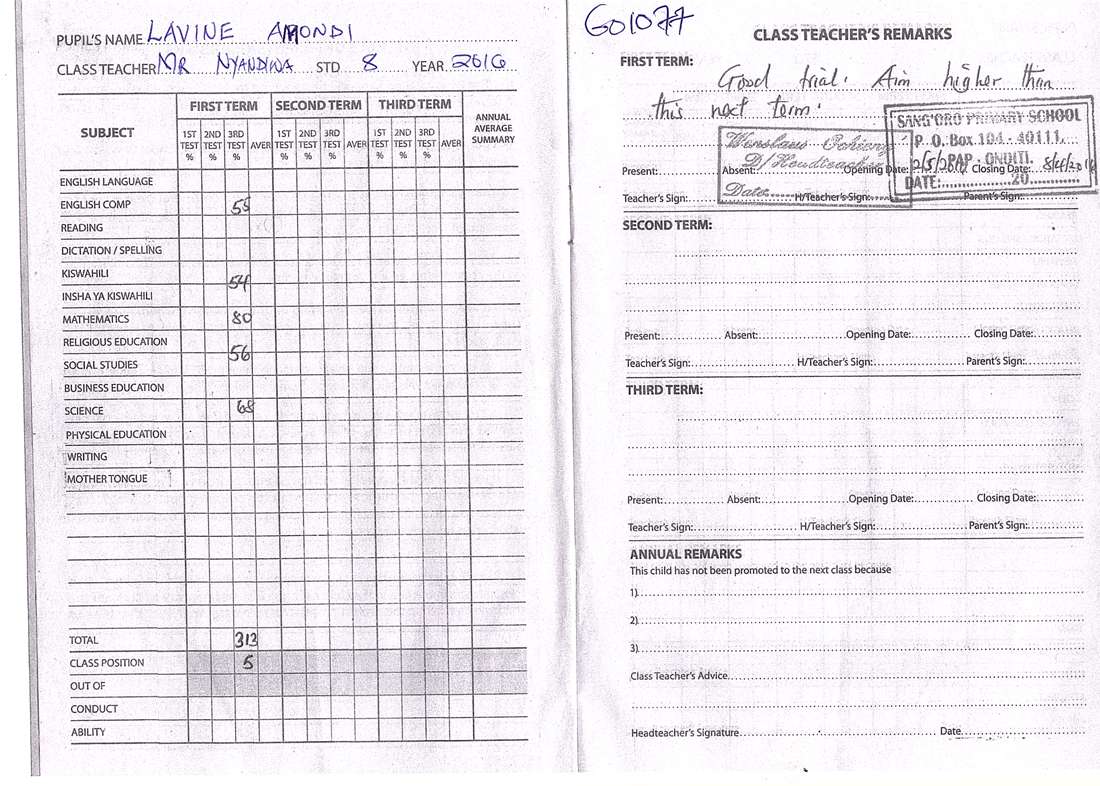 PUPIL'S NAME LAVINE AMONDI
CLASS TEACHER MR NYANDIWA STD 8 YEAR 2016
SUBJECT FIRST TERM SECOND TERM THIRD TERM ANNUAL AVERAGE SUMMARY
1ST TEST % 2ND TEST % 3RD TEST % AVER 1ST TEST % 2ND TEST % 3RD TEST % AVER 1ST TEST % 2ND TEST % 3RD TEST % AVER
ENGLISH LANGUAGE
ENGLISH COMP 55
READING
DICTATION / SPELLING
KISWAHILI
54
INSHA YA KISWAHILI
MATHEMATICS 80
RELIGIOUS EDUCATION
56
SOCIAL STUDIES
BUSINESS EDUCATION
SCIENCE 68
PHYSICAL EDUCATION
WRITING
MOTHER TONGUE
TOTAL 313
CLASS POSITION 5
OUT OF
CONDUCT
ABILITY
GO1077
CLASS TEACHER'S REMARKS
FIRST TERM: Good trial. Aim higher than
this next term.
SANG'ORO PRIMARY SCHOOL
P. O. Box 104 - 40111,
PAP - ONDITI.
DATE:...............20............
Wenslaus Ochieng'
D/Headteacher
Date
Present: Absent: Opening Date: Closing Date: 8/4/2016
Teacher's Sign: H/Teacher's Sign: Parent's Sign:
SECOND TERM:
Present: Absent: Opening Date: Closing Date:
Teacher's Sign: H/Teacher's Sign: Parent's Sign:
THIRD TERM:
Present: Absent: Opening Date: Closing Date:
Teacher's Sign: H/Teacher's Sign: Parent's Sign:
ANNUAL REMARKS
This child has not been promoted to the next class because
1)
2)
3)
Class Teacher's Advice
Headteacher's Signature Date